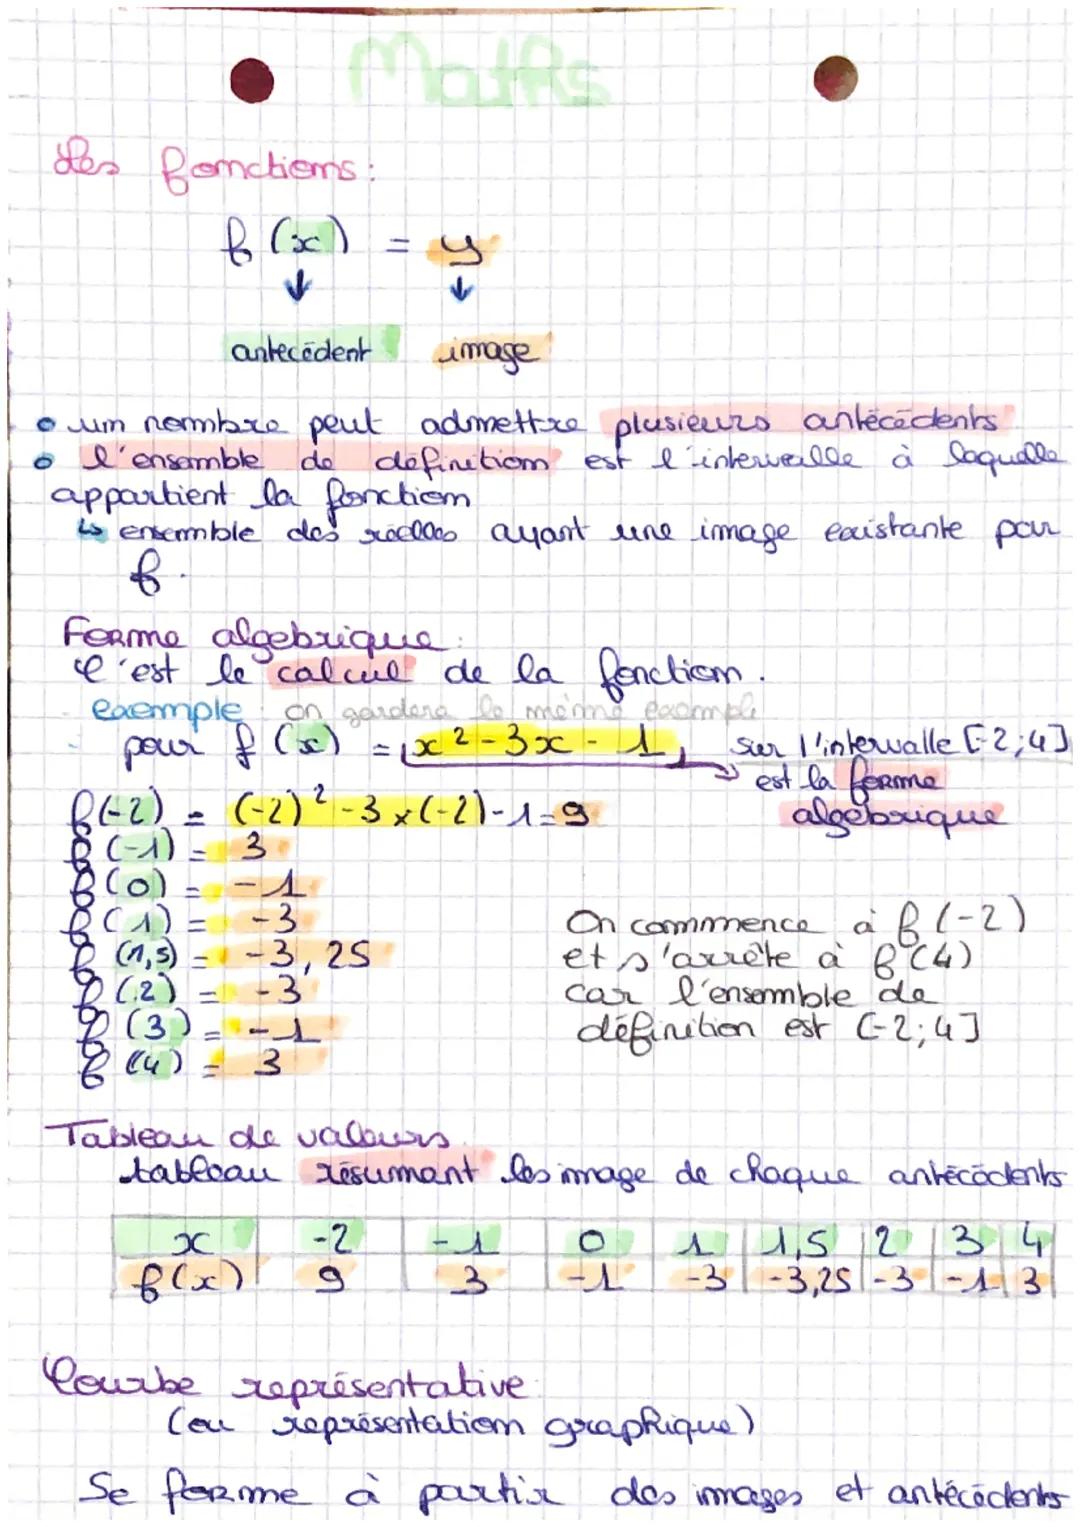 Maths
Les fonctions:
f (x) = y
antécédent image
un nombre peut admettre plusieurs antécédents
l'ensemble de définition est l'intervalle à laquelle
appartient la fonction
↳ ensemble des réelles ayant une image existante par
f.
Forme algebrique:
C'est le calcul de la fonction.
exemple : on gardera le même exemple
pour f (x) = x² - 3x - 1 sur l'intervalle [-2;4]
est la forme
algébrique
f(-2) = (-2)² - 3 x (-2) - 1 = 9
f (-1) = 3
f (0) = -1
f (1) = -3
f (1,5) = -3,25
f (2) = -3
f (3) = -1
f (4) = 3
On commence à f (-2)
et s'arrête à f (4)
car l'ensemble de
définition est [-2;4]
Tableau de valeurs
tableau résumant les image de chaque antécédents
x -2 -1 0 1 1,5 2 3 4
f(x) 9 3 -1 -3 -3,25 -3 -1 3
Courbe représentative
(ou représentation graphique)
Se forme à partir des images et antécédents